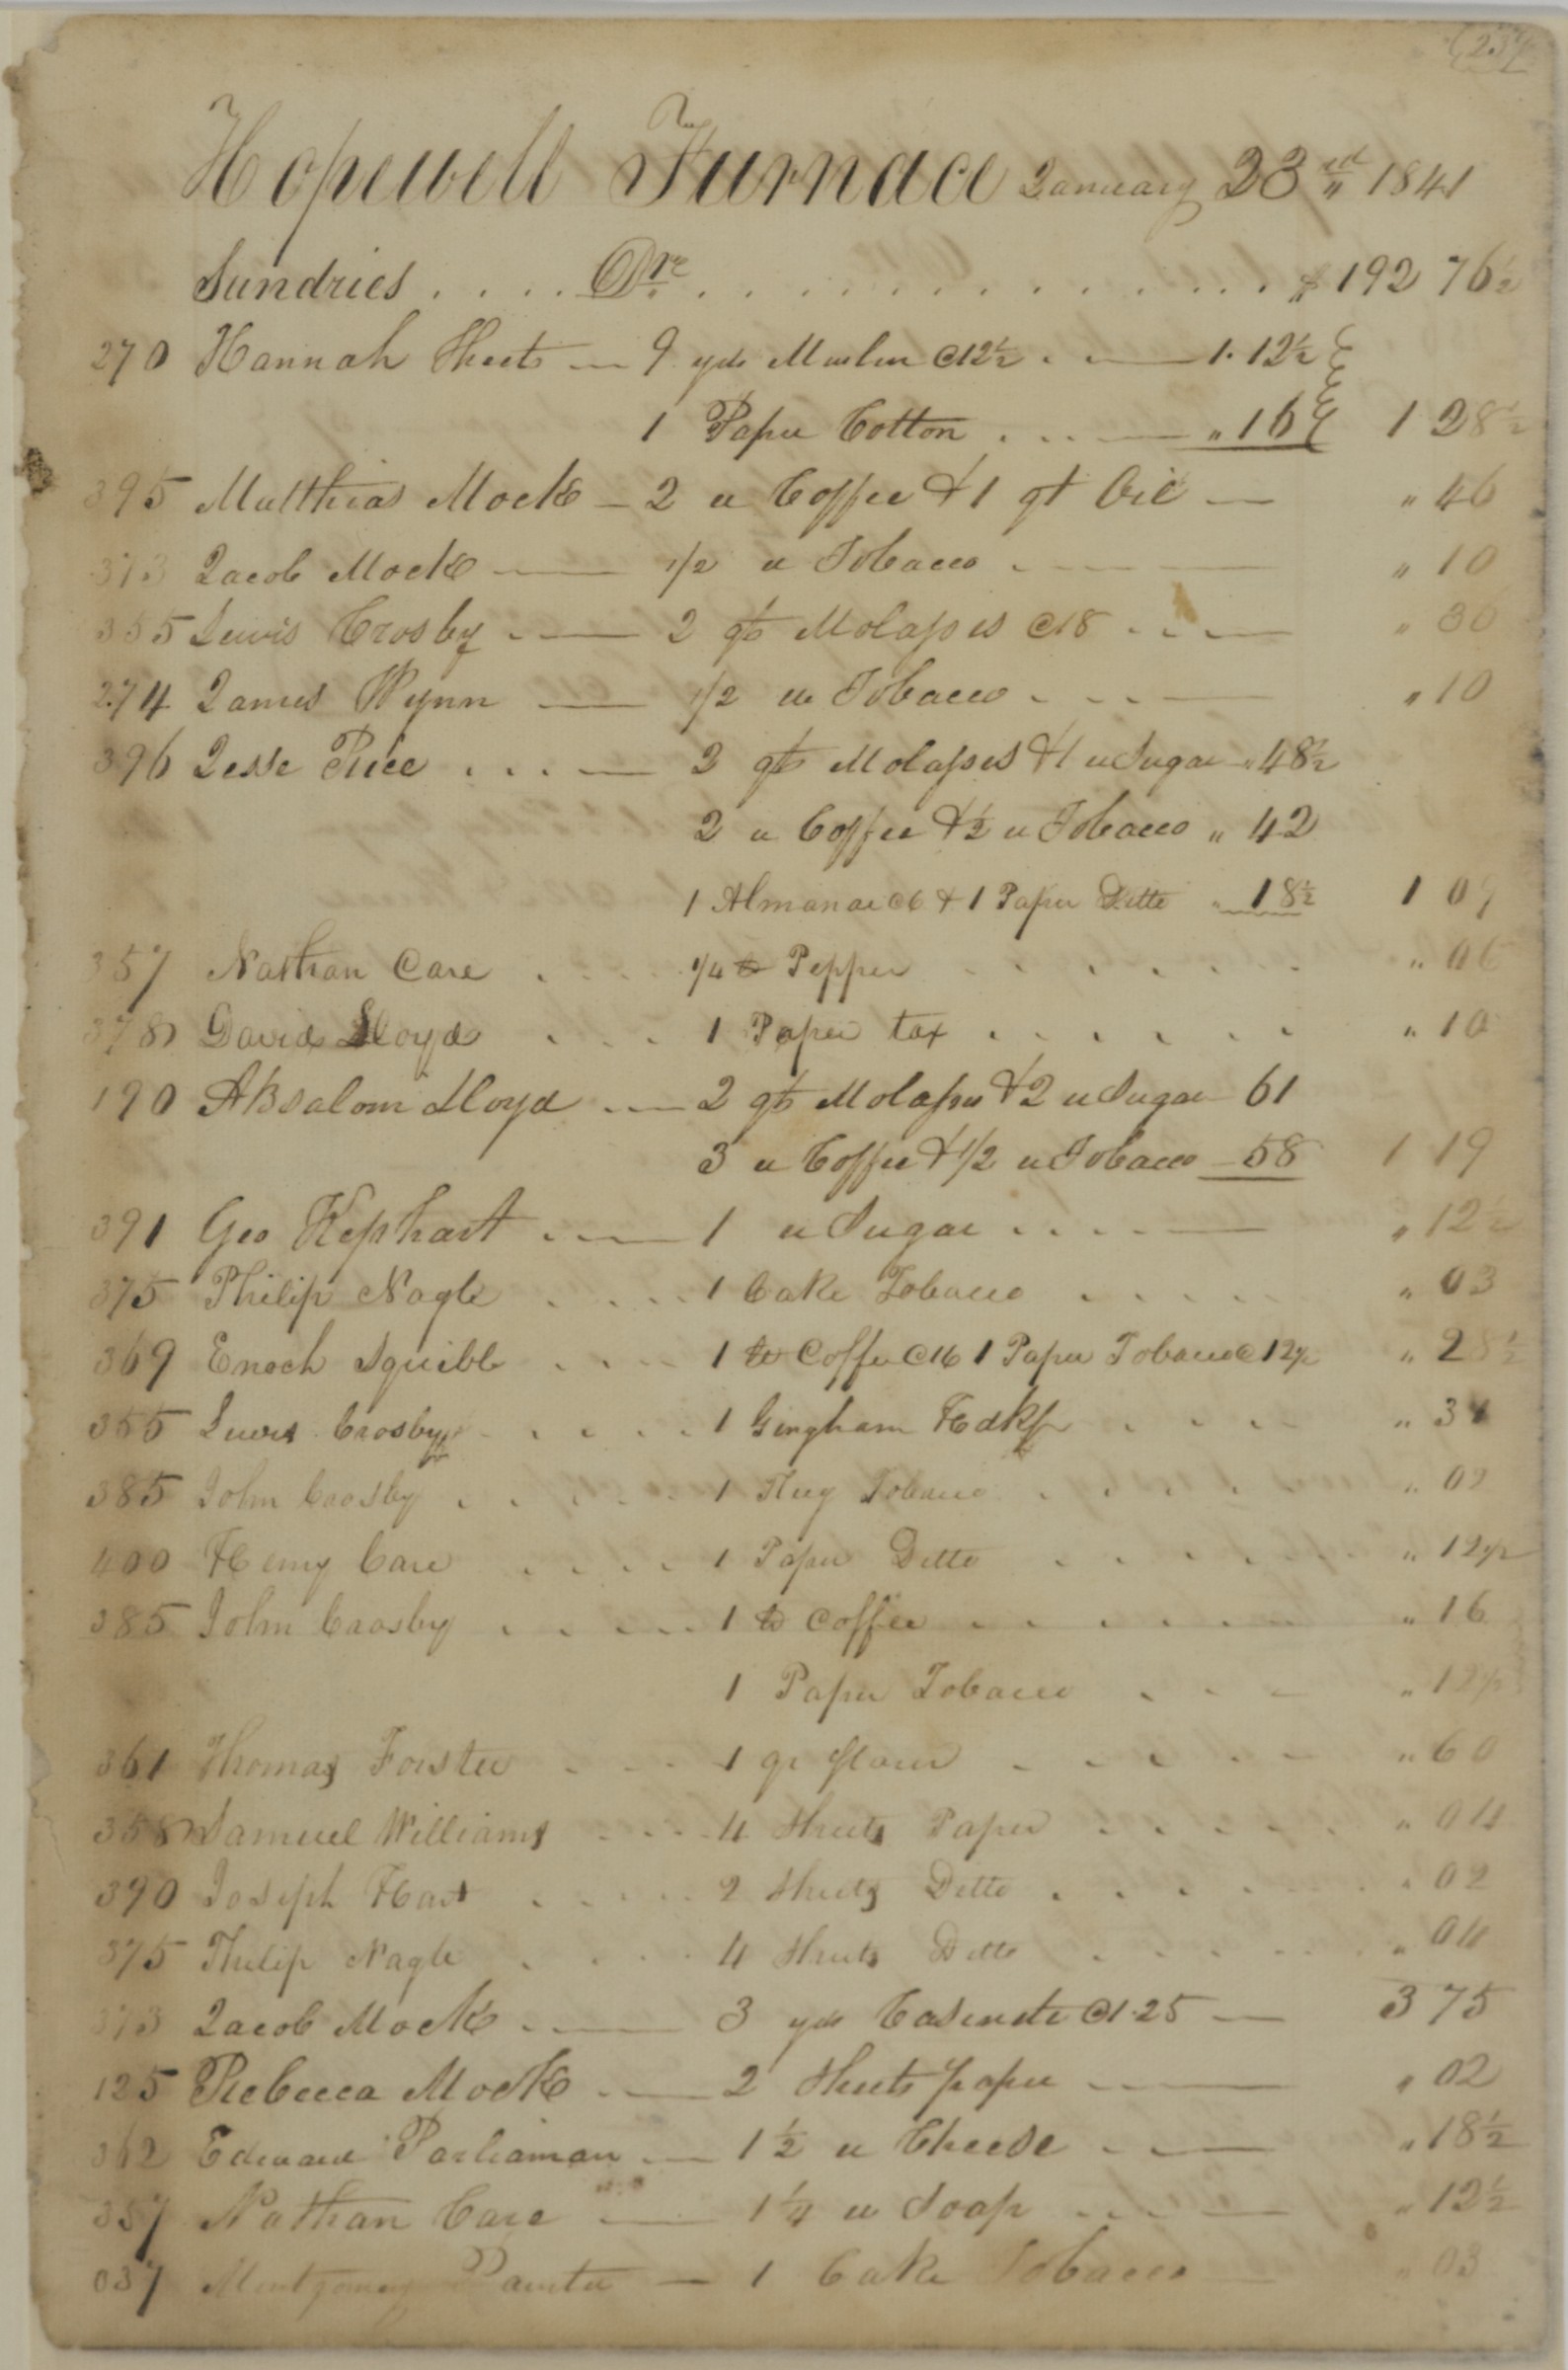 237
Hopewell Furnace January 23rd 1841
Sundries . . . . Drs . . . . . . . . . . . . . . $ 192 76½
270 Hannah Sheets — 9 yds Muslin @12½ . — 1.12½
1 Paper Cotton . . . — " 16 1 28½
395 Matthias Mock — 2 " Coffee & 1 qt Oil — " 46
373 Jacob Mock — 1/2 " Tobacco . — " 10
355 Lewis Crosby . — 2 qts Molasses @18 . . — " 36
274 James Wynn — 1/2 " Tobacco . . . — " 10
396 Jesse Price . . . — 2 qts Molasses & 1 " Sugar " 48½
2 " Coffee & ½ " Tobacco " 42
1 Almanac @6 & 1 Paper Ditto " 18½ 1 09
357 Nathan Care . . . . 1/4 lb Pepper . . . . . . " 06
378 David Lloyd . . . 1 Paper tax . . . . . . " 10
190 Absalom Lloyd . — 2 qts Molasses & 2 " Sugar — 61
3 " Coffee & 1/2 " Tobacco — 58 1 19
391 Geo Kephart . — 1 " Sugar . . . . — " 12½
375 Philip Nagle . . . . 1 Cake Tobacco . . . . . " 03
369 Enoch Squibb . . . . 1 lb Coffee @16 1 Paper Tobacco @ 12½ " 28½
355 Lewis Crosby . . . . 1 Gingham Hdkf . . . . " 31
385 John Crosby . . . . . 1 Plug Tobacco . . . . . . " 02
400 Henry Care . . . . 1 Paper Ditto . . . . . . " 12½
385 John Crosby . . . . . 1 lb Coffee . . . . . . " 16
1 Paper Tobacco . . . " 12½
361 Thomas Forster . . . 1 qr flour . . . . . " 60
358 Samuel Williams . . . 4 Sheets Paper . . . . . " 04
390 Joseph Hart . . . . 2 Sheets Ditto . . . . . " 02
375 Philip Nagle . . . . 4 Sheets Ditto . . . . . " 04
373 Jacob Mock . — 3 yds Casinete @1.25 — 3 75
125 Rebecca Mock . — 2 Sheets paper — " 02
362 Edward Parliaman . — 1½ " Cheese . . — " 18½
357 Nathan Care — 1¼ " Soap . . . — " 12½
037 Montgomery Painter — 1 Cake Tobacco — " 03